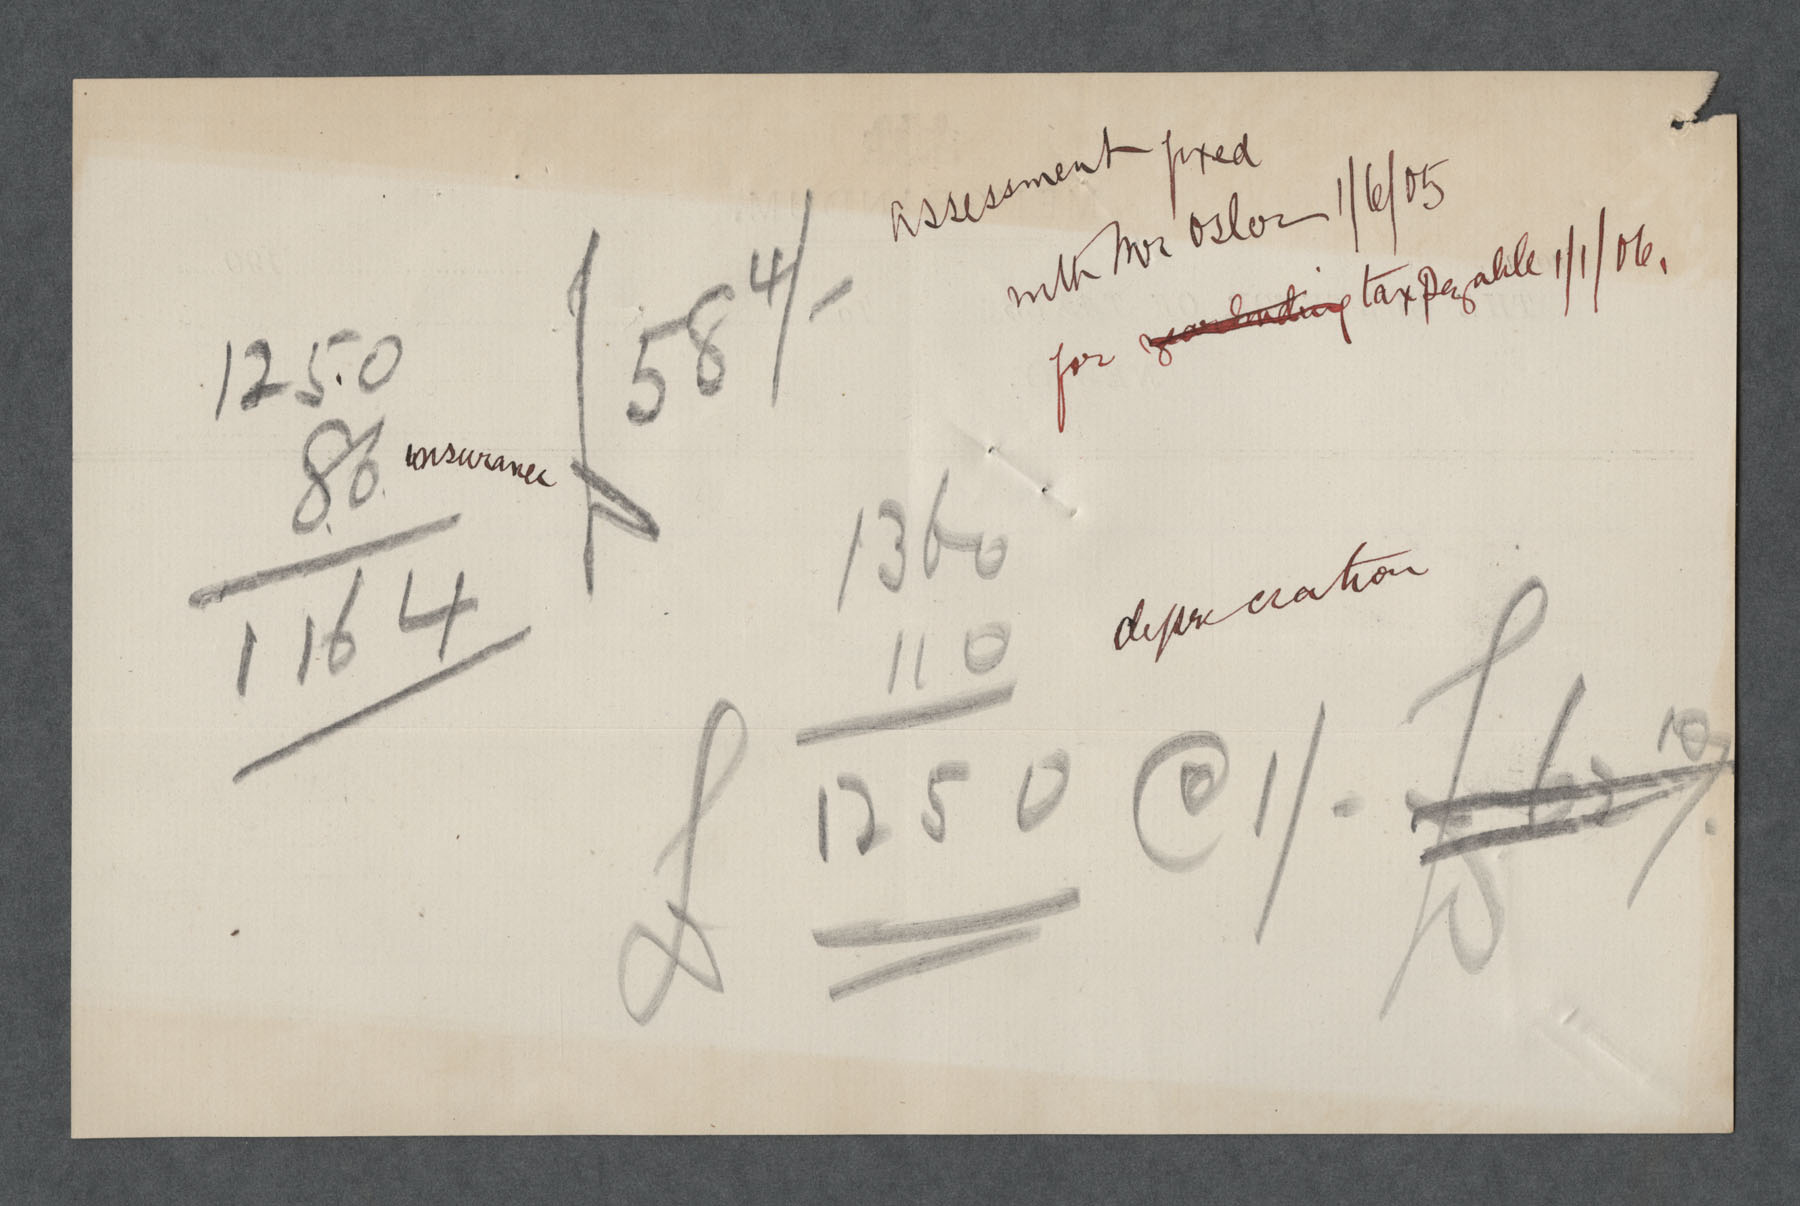 assessment fixed
with Mr Oslor 1/6/05
for year ending tax payable 1/1/06.
1250
86 insurance
1164
58 4/-
1360
110 depreciation
£ 1250 @ 1/- £62 10/.